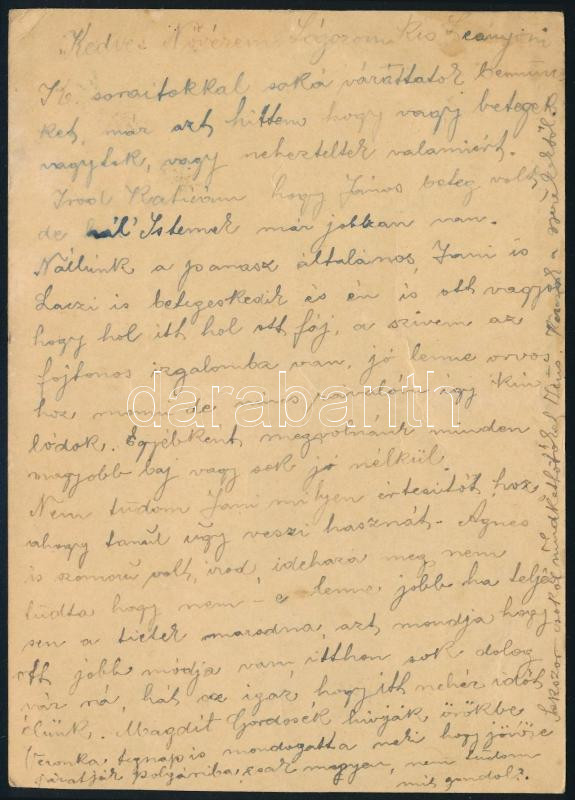 Kedves Nővérem Sógorom kis Leányom
K. soraitokkal soká várattatok bennün
ket, már azt hittem hogy vagy betegek
vagytok, vagy nehezteltek valamiért.
Irod Katicám hogy János beteg volt
de hál' Istenek már jobban van.
Nállunk a panasz általános, Jani is
Laczi is betegeskedik és én is ott vagyok
hogy hol itt hol ott fáj, a szivem az
fojtonos izgalomba van, jó lenne orvos
hoz menni de nincs időm így kín
lódok. Egyébként megvolnánk minden
nagyobb baj vagy sok jó nélkül.
Nem tudom Jani milyen értesítőt hoz
ahogy tanul úgy veszi hasznát. Ágnes
is szomorú volt, irod idehaza meg nem
tudta hogy nem-e lenne jobb ha teljé
sen a tietek maradna, azt mondja hogy
ott jobb módja van itthon sok dolog
vár rá, hát az igaz hogy itt nehéz időt
élünk. Magdit Gordosék hívják örökbe
Veronka tegnap is mondogatta neki hogy jövőre
járatják polgáriba, csak menyen, nem tudom
mit gondol?
Sokszor csókol mindkettőtöket
darabanth